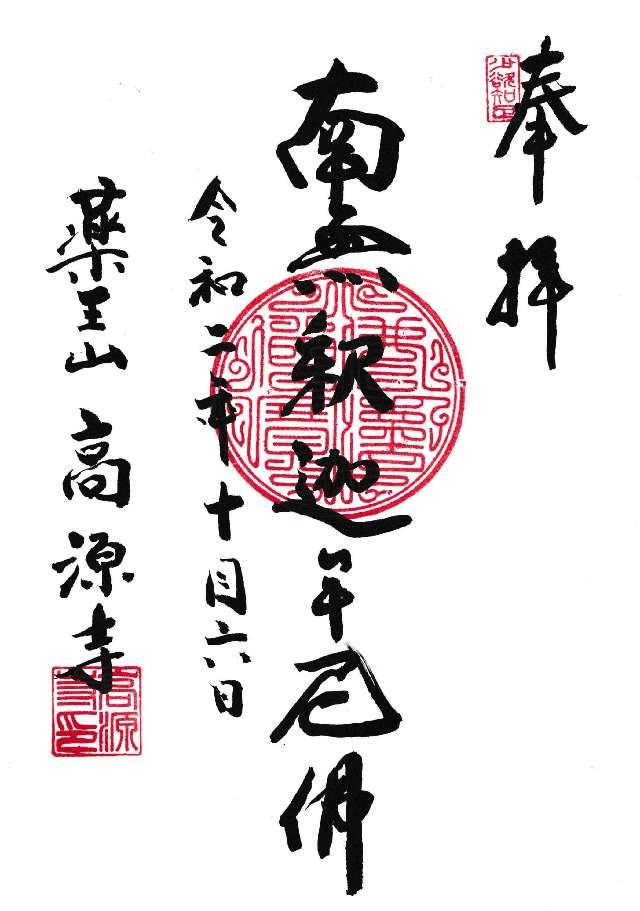 奉拝
南無釈迦牟尼佛
令和二年十月六日
薬王山 高源寺
高源寺印